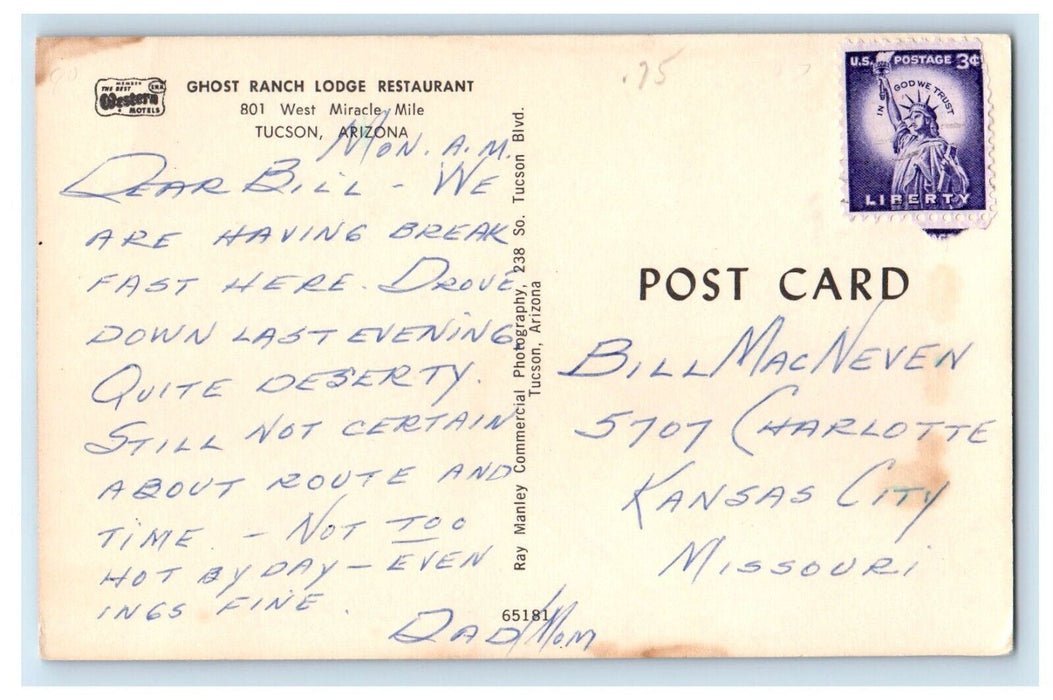 MEMBER
THE BEST
Western
MOTELS
GHOST RANCH LODGE RESTAURANT
801 West Miracle Mile
TUCSON, ARIZONA
MON. A.M.
DEAR BILL - WE
ARE HAVING BREAK
FAST HERE. DROVE
DOWN LAST EVENING
QUITE DESERTY.
STILL NOT CERTAIN
ABOUT ROUTE AND
TIME - NOT TOO
HOT BY DAY - EVEN
INGS FINE.
DAD/MOM
65181
Ray Manley Commercial Photography, 238 So. Tucson Blvd.
Tucson, Arizona
.75
U.S. POSTAGE 3¢
IN GOD WE TRUST
LIBERTY
POST CARD
BILL MACNEVEN
5707 CHARLOTTE
KANSAS CITY
MISSOURI